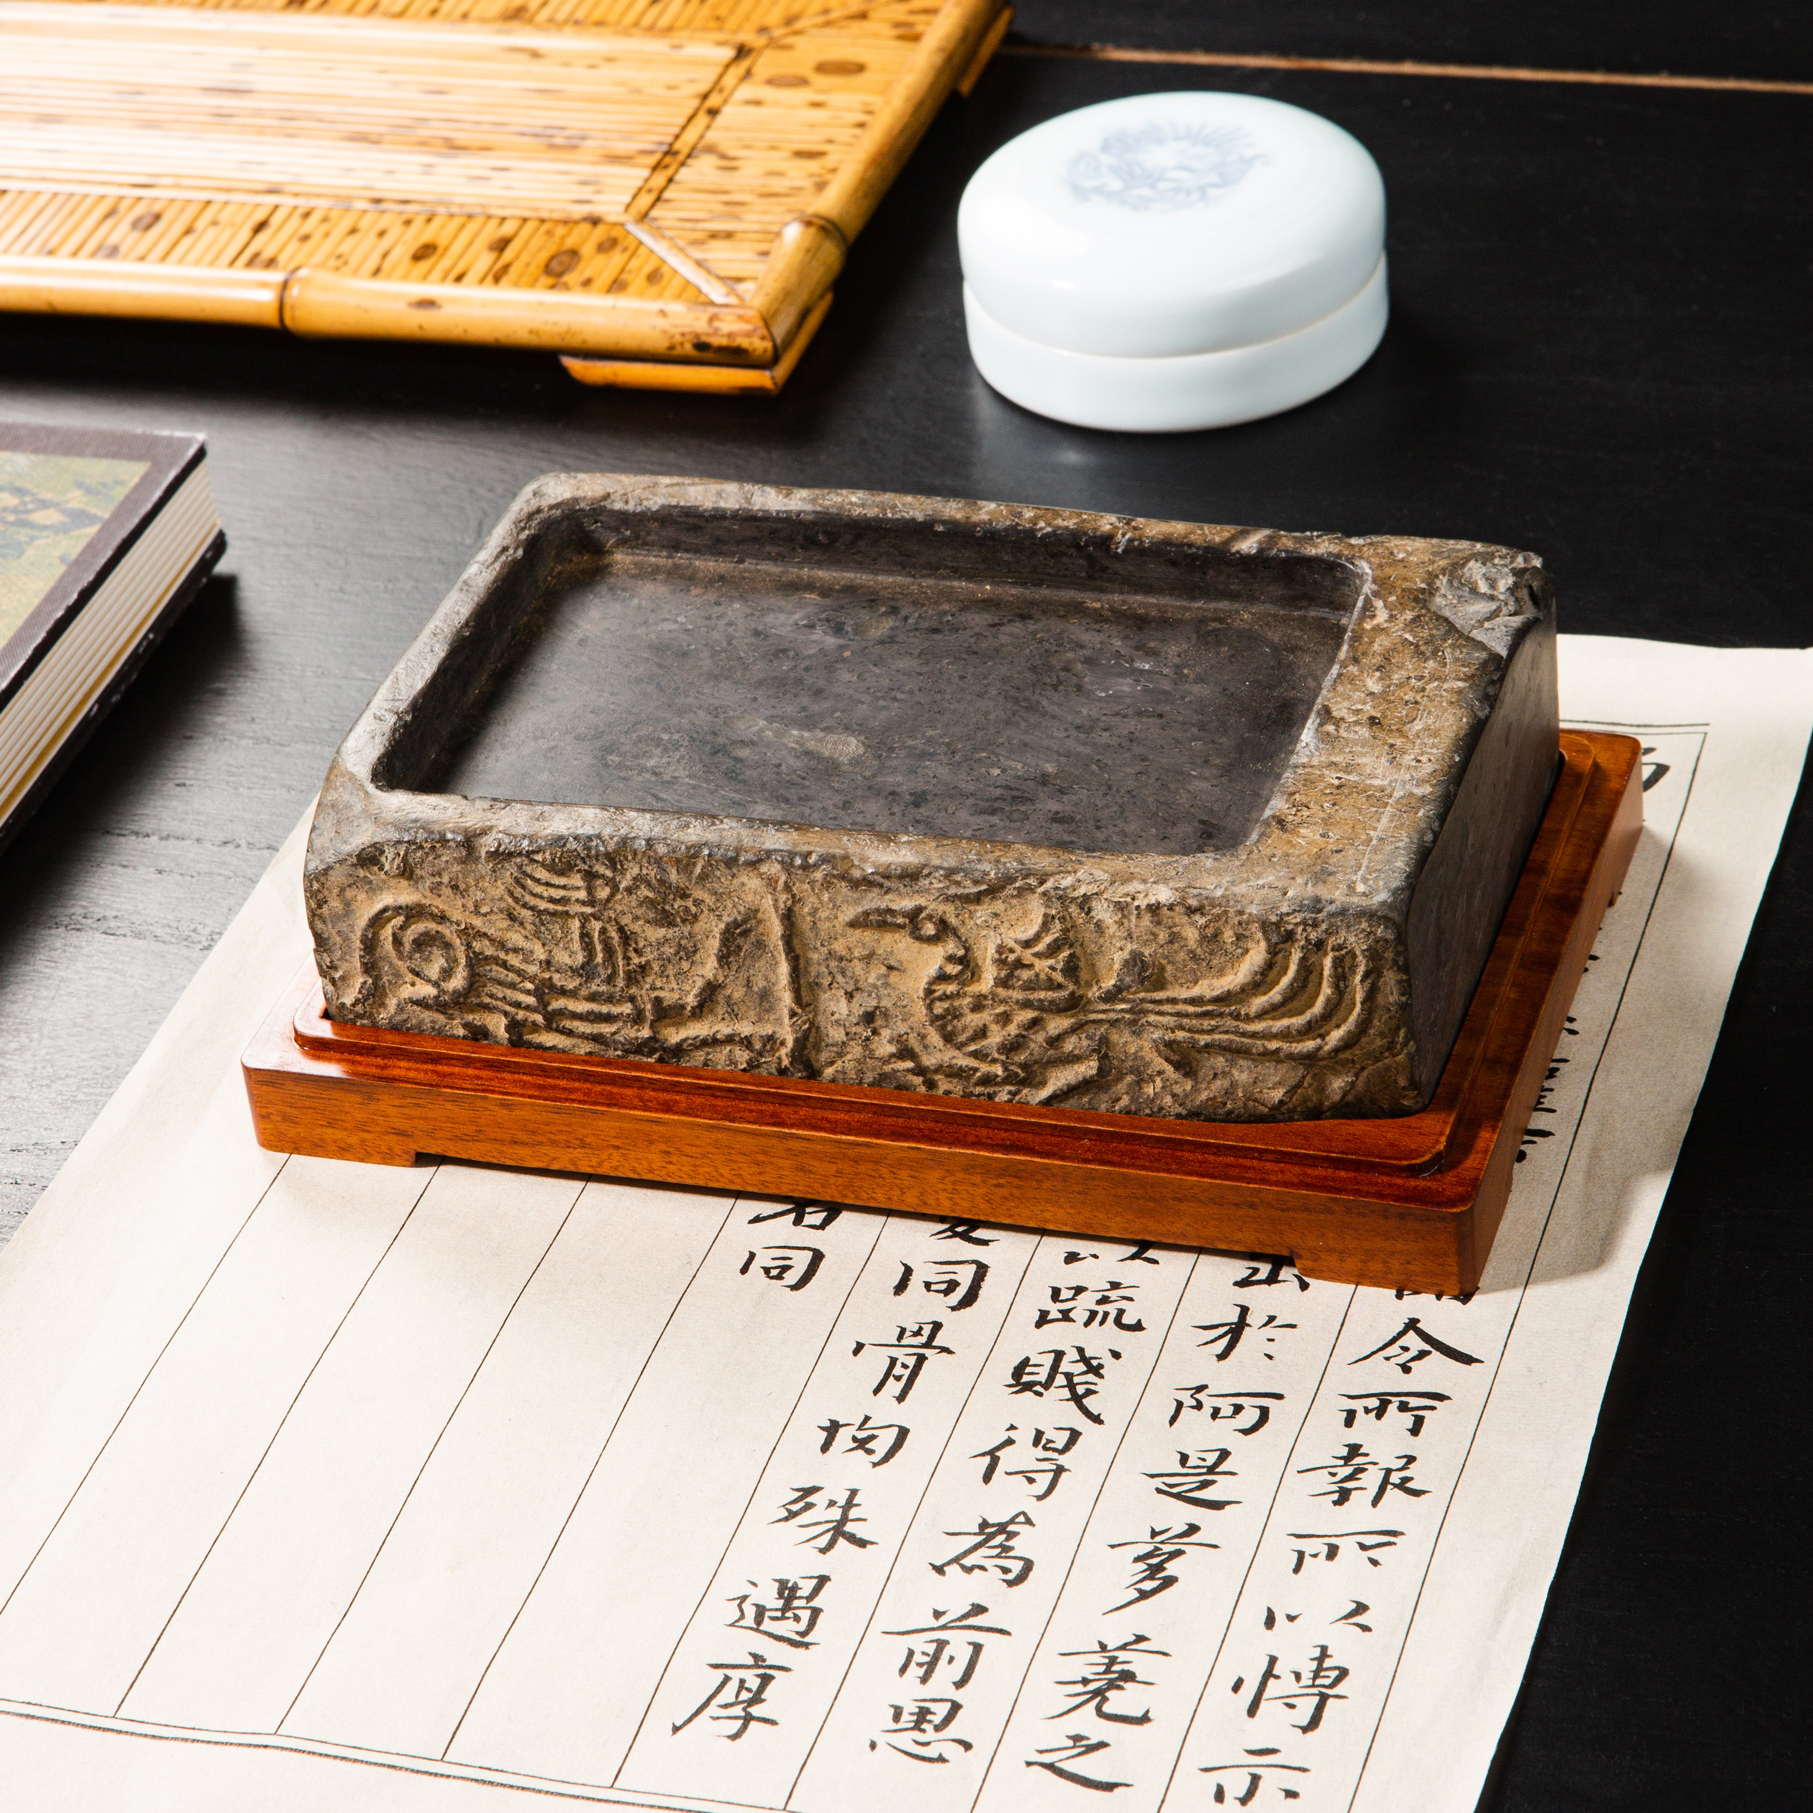 令所報所以愽示
出於阿是蒭蕘之
以疏賤得為前恩
同骨肉殊遇厚
名同